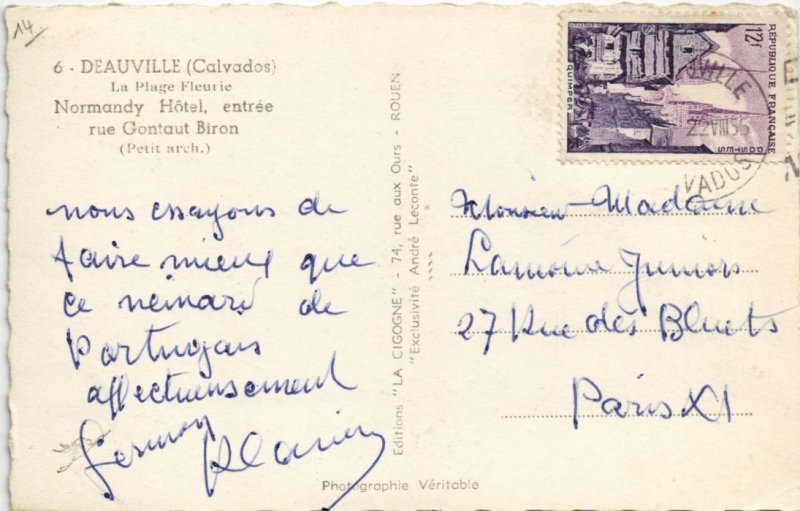 14
6 - DEAUVILLE (Calvados)
La Plage Fleurie
Normandy Hôtel, entrée
rue Gontaut Biron
(Petit arch.)
nous essayons de
faire mieux que
ce de
Portugais
affectueusement
Editions "LA CIGOGNE" - 74, rue aux Ours - ROUEN
"Exclusivité André Leconte"
Photographie Véritable
12f
RÉPUBLIQUE FRANÇAISE
QUIMPER
POSTES
22 VIII 55
VADOS
Monsieur Madame
Juniors
27 Rue des Bluets
Paris XI